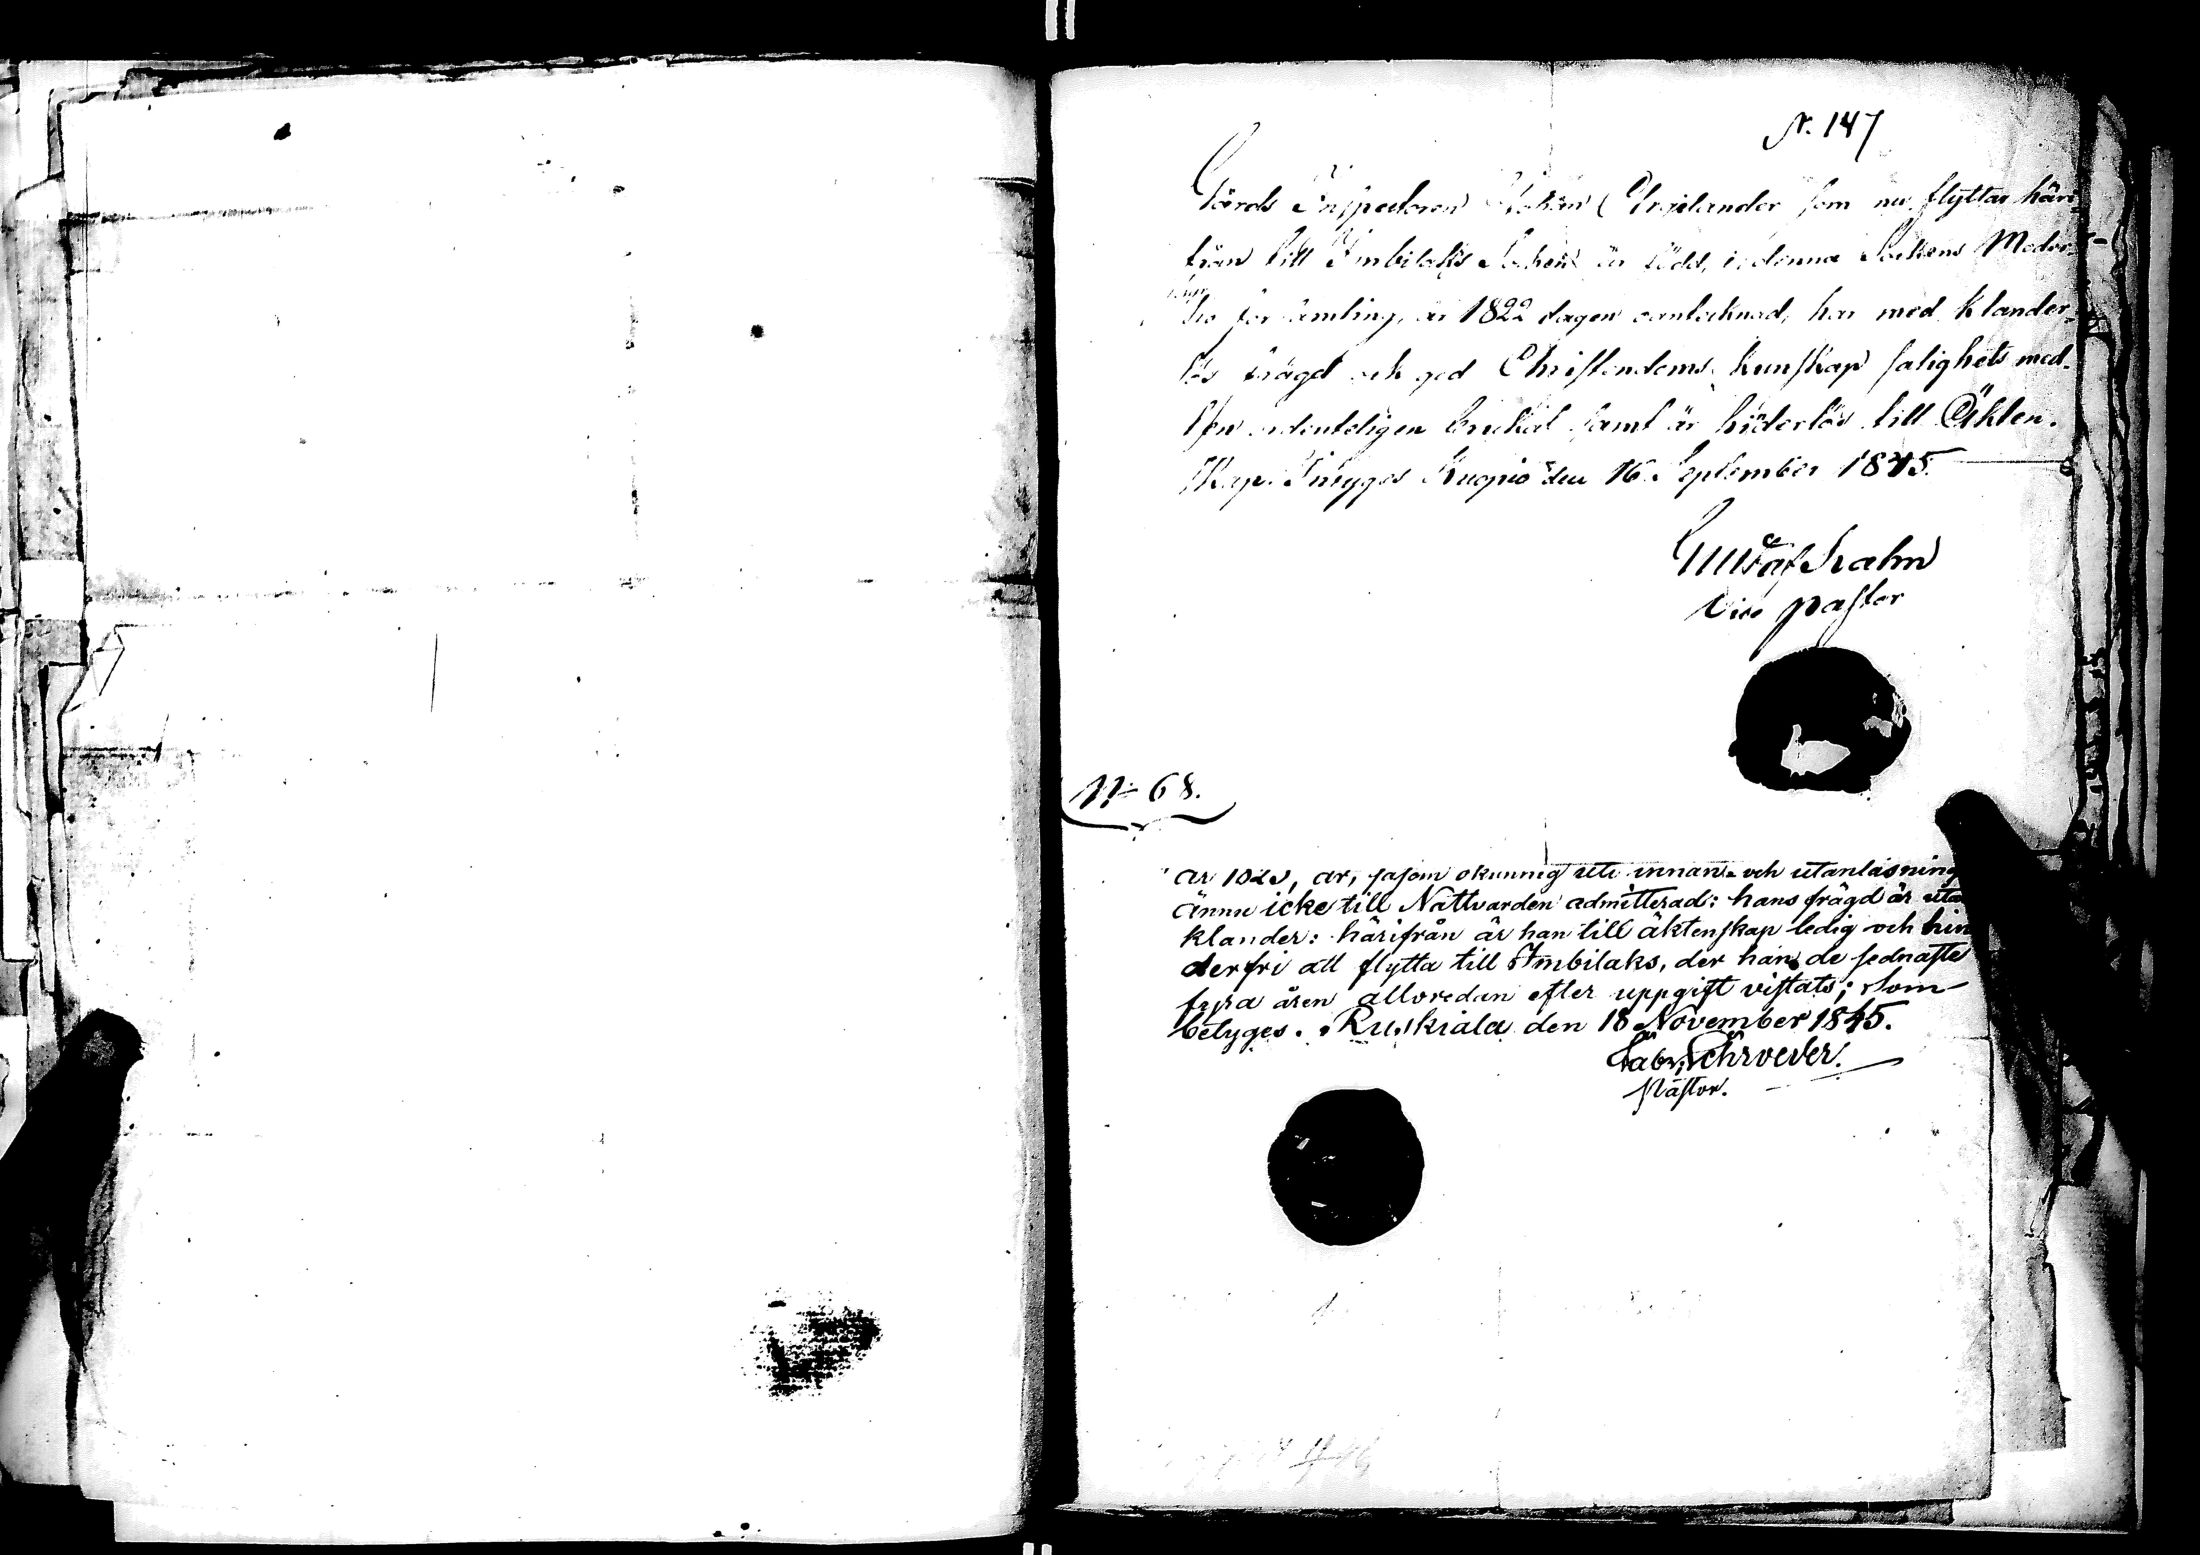 N. 147
Gårds Inspectoren Johan Engelander som nu flyttar häri-
från till Imbilaks Socken är född, i denna Sockens Moder-
försämling, år 1822 dagen oantecknad, har med klander-
lös frägd och god Christendoms kunskap salighets med-
len ordenteligen brukat samt är hinderlös till Äkten-
skap. Intygas Kuopio den 16 September 1845.
Gustaf
Vice pastor
No 68.
år, såsom okunnig uti innan- och utanläsning
ännu icke till Nattvarden admitterad: hans frägd är uta
klander: härifrån är han till äktenskap ledig och hin
derfri att flytta till Imbilaks, der han de sednaste
fyra åren alloredan efter uppgift vistats; som
betyges. Ruskiala den 18 November 1845.
Gabr. Schroeder.
Pastor.